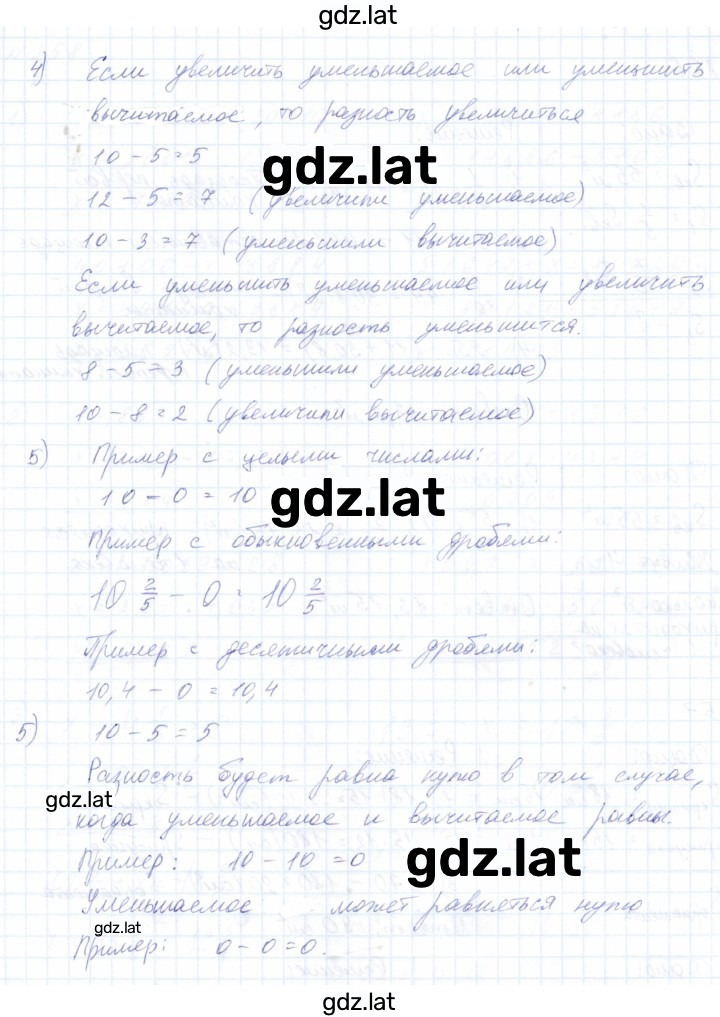 gdz.lat
4) Если увеличить уменьшаемое или уменьшить
вычитаемое, то разность увеличиться
10 - 5 = 5
gdz.lat
12 - 5 = 7 (увеличили уменьшаемое)
10 - 3 = 7 (уменьшили вычитаемое)
Если уменьшить уменьшаемое или увеличить
вычитаемое, то разность уменьшится.
8 - 5 = 3 (уменьшили уменьшаемое)
10 - 8 = 2 (увеличили вычитаемое)
5) Пример с целыми числами:
10 - 0 = 10
gdz.lat
Пример с обыкновенными дробями:
10 2/5 - 0 = 10 2/5
Пример с десятичными дробями:
10,4 - 0 = 10,4
5) 10 - 5 = 5
Разность будет равна нулю в том случае,
gdz.lat
когда уменьшаемое и вычитаемое равны.
Пример: 10 - 10 = 0
gdz.lat
Уменьшаемое может равняться нулю
gdz.lat
Пример: 0 - 0 = 0.
gdz.lat